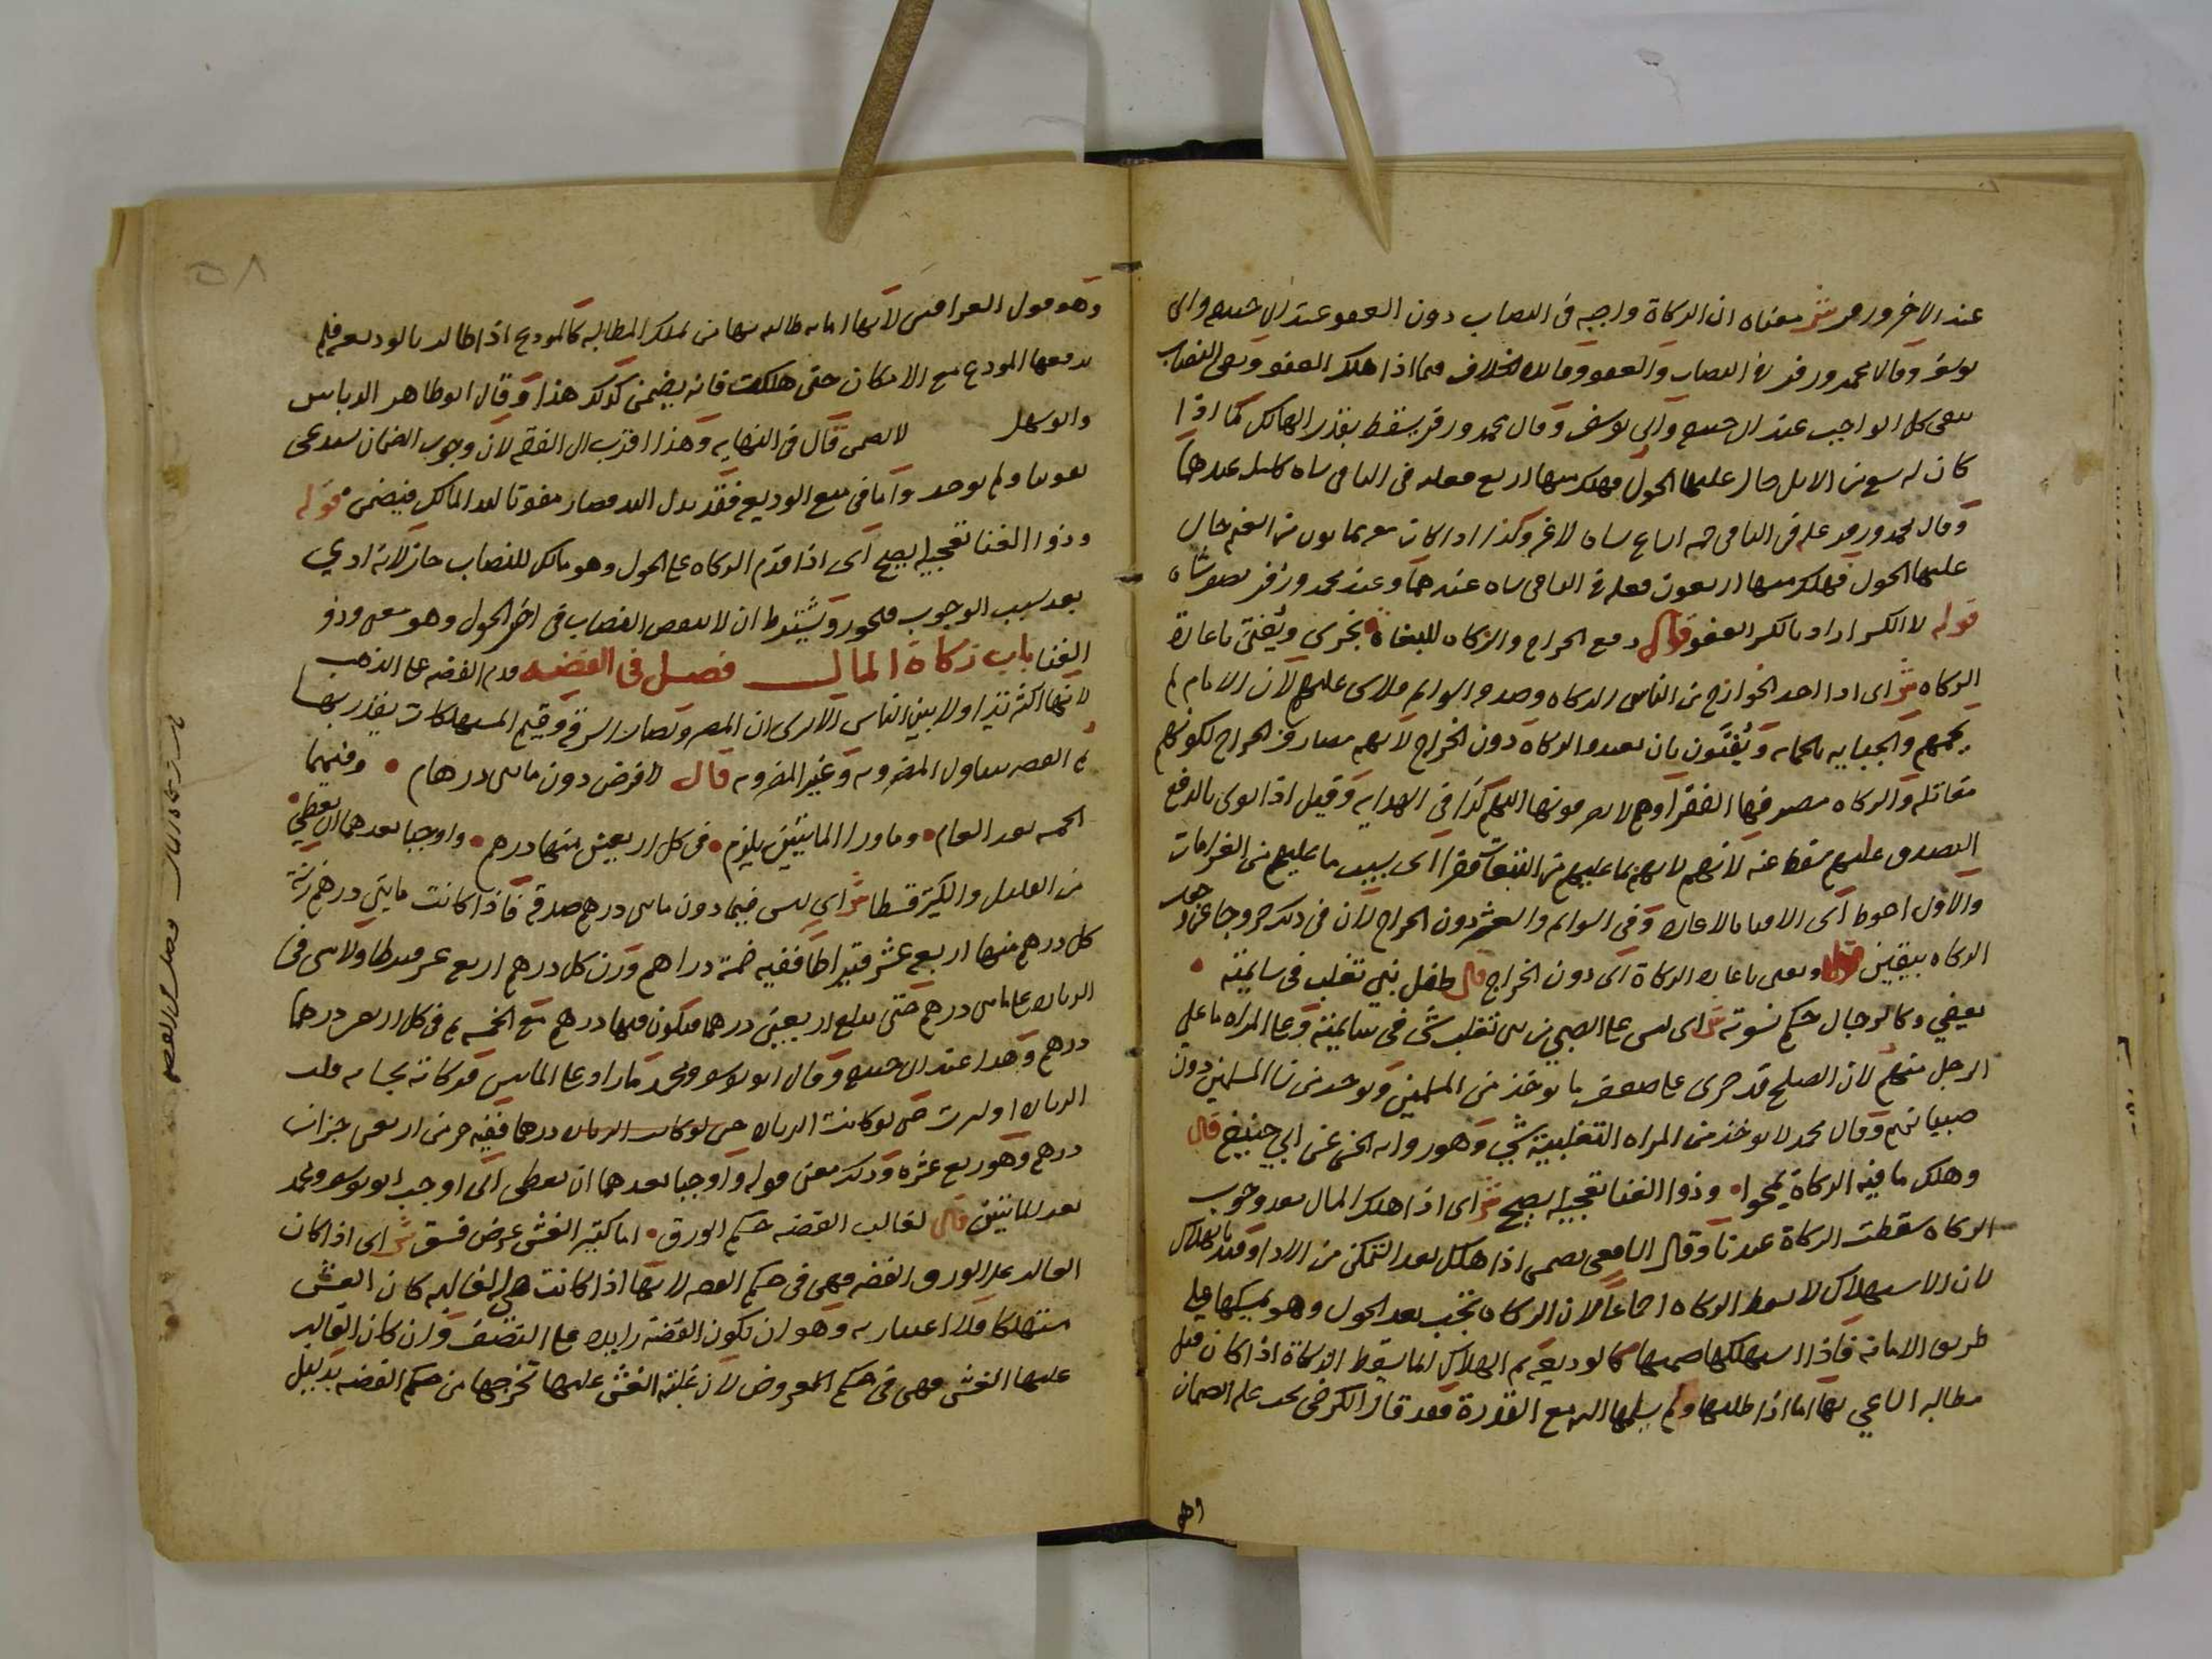 عند الاخر وزفر ش معناه ان الزكاة واجبه في النصاب دون العفو عند ابي حنيفه وابي
يوسف وقال محمد وزفر في النصاب والعفو وفائده الخلاف فيما اذا هلك العفو وبقي النصاب
يبقى كل الواجب عند ابي حنيفه وابي يوسف وقال محمد وزفر يسقط بقدر الهالك كما اذا
كان له تسع من الابل حال عليها الحول فهلك منها اربع فعليه في الباقي شاه كامله عندهما
وقال محمد وزفر عليه في الباقي خمسه اتساع شاه لا غير وكذا اذا كانت معه ثمانون من الغنم حال
عليها الحول فهلك منها اربعون فعليه في الباقي شاه عندهما وعند محمد وزفر نصف شاه
قوله لا الكسر اراد بالكسر العفو قال دفع الخراج والزكاه للبغاة يجزي ويفتى باعادة
الزكاه ش اي اذا اخذ الخوارج من الناس الزكاه وصدقه السوايم فلا شي عليهم لان الامام لم
يحمهم والجبايه بالحمايه ويفتون بان يعيدوا الزكاه دون الخراج لانهم مصارف الخراج لكونهم
مقاتله والزكاه مصرفها الفقرا وهم لا يصرفونها اليهم كذا في الهدايه وقيل اذا نوى بالدفع
التصدق عليهم سقط عنه لانهم لانهم بما عليهم من التبعات فقرا اي بسبب ما عليهم من الغرامات
والاول احوط اي الافتا بالاعاده وفي السوايم والعشر دون الخراج لان في ذلك خروجا عن عهده
الزكاه بيقين قوله ويفتى باعاده الزكاة اي دون الخراج قال طفل بني تغلب في سايمته
يعفي وكالرجال حكم نسوته ش اي ليس على الصبي من بني تغلب شي في سايمته وعلى المراه ما على
الرجل منهم لان الصلح قد جرى على ضعف ما يوخذ من المسلمين ويوخذ من نسا المسلمين دون
صبيانهم وقال محمد لا يوخذ من المراه التغلبيه شي وهو روايه الحسن عن ابي حنيفه قال
وهلك ما فيه الزكاة يمحوا وذوا الغنا تعجيله يصح ش اي اذا هلك المال بعد وجوب
الزكاه سقطت الزكاة عندنا وقال الشافعي يضمن اذا هلك بعد التمكن من الادا وقيد بالهلاك
لان الاستهلاك لا يسقط الزكاه اجماعا لان الزكاه تجب بعد الحول وهو يمسكها على
طريق الامانه فاذا استهلكها ضمنها كالوديعه ثم الهلاك انما يسقط الزكاة اذا كان قبل
مطالبه الساعي بها اما اذا طلبها ولم يسلمها اليه مع القدرة فقد قال الكرخي يجب عليه الضمان
وهو
٥٨
وهو قول العراقيين لانها امانه طالبه بها من يملك المطالبه كالمودع اذا طالب بالوديعه فلم
يدفعها المودع مع الامكان حتى هلكت فانه يضمن كذلك هذا وقال ابو طاهر الدباس
وابو سهل لا يضمن قال في النهايه وهذا اقرب الى الفقه لان وجوب الضمان يستدعي
تفويتا ولم يوجد واما في منع الوديعه فقد بدل اليد فصار مفوتا ليد المالك فيضمن قوله
وذوا الغنا تعجيله يصح اي اذا قدم الزكاه على الحول وهو مالك للنصاب جاز لانه ادى
بعد سبب الوجوب فيجوز ويشترط ان لا ينقص النصاب في اخر الحول وهو معنى وذو
الغنا باب زكاة المال فصل في الفضه قدم الفضه على الذهب
لانها اكثر تداولا بين الناس الا ترى ان المهر ونصاب السرقه وقيم المستهلكات يقدر بها
ثم الفضه يتناول المضروبه وغير المضروبه قال لا فرض دون مايتي درهم وفيهما
الخمسه بعد العام وما ورا المايتين يلزم في كل اربعين منها درهم واوجبا بعدهما ان يعطي
من القليل والكثير قسطا ش اي ليس فيما دون مايتي درهم صدقه فاذا كانت مايتي درهم زنة
كل درهم منها اربعه عشر قيراطا ففيه خمسة دراهم وزن كل درهم اربع عشر قيراطا ولا شي في
الزياده على مايتي درهم حتى تبلغ اربعين درهما فيكون فيها درهم مع الخمسه ثم في كل اربعين درهما
درهم وهذا عند ابي حنيفه وقال ابو يوسف ومحمد ما زاد على المايتين فزكاته بحسابه قلت
الزياده او كثرت حتى لو كانت الزياده حتى لو كانت الزياده درهما ففيه جز من اربعين جزا من
درهم وهو ربع عشره وذلك معنى قوله واوجبا بعدهما ان يعطى اي اوجب ابو يوسف ومحمد
بعد المايتين قال لغالب الفضه حكم الورق اما كثير الغش عرض فسق ش اي اذا كان
الغالب على الورق الفضه فهي في حكم الفضه لانها اذا كانت هي الغالبه كان الغش
مستهلكا فلا اعتبار به وهو ان تكون الفضة زايده على النصف وان كان الغالب
عليها الغش فهي في حكم العروض لان غلبة الغش عليها تخرجها من حكم الفضه بدليل
باب زكاة المال فصل في الفضه